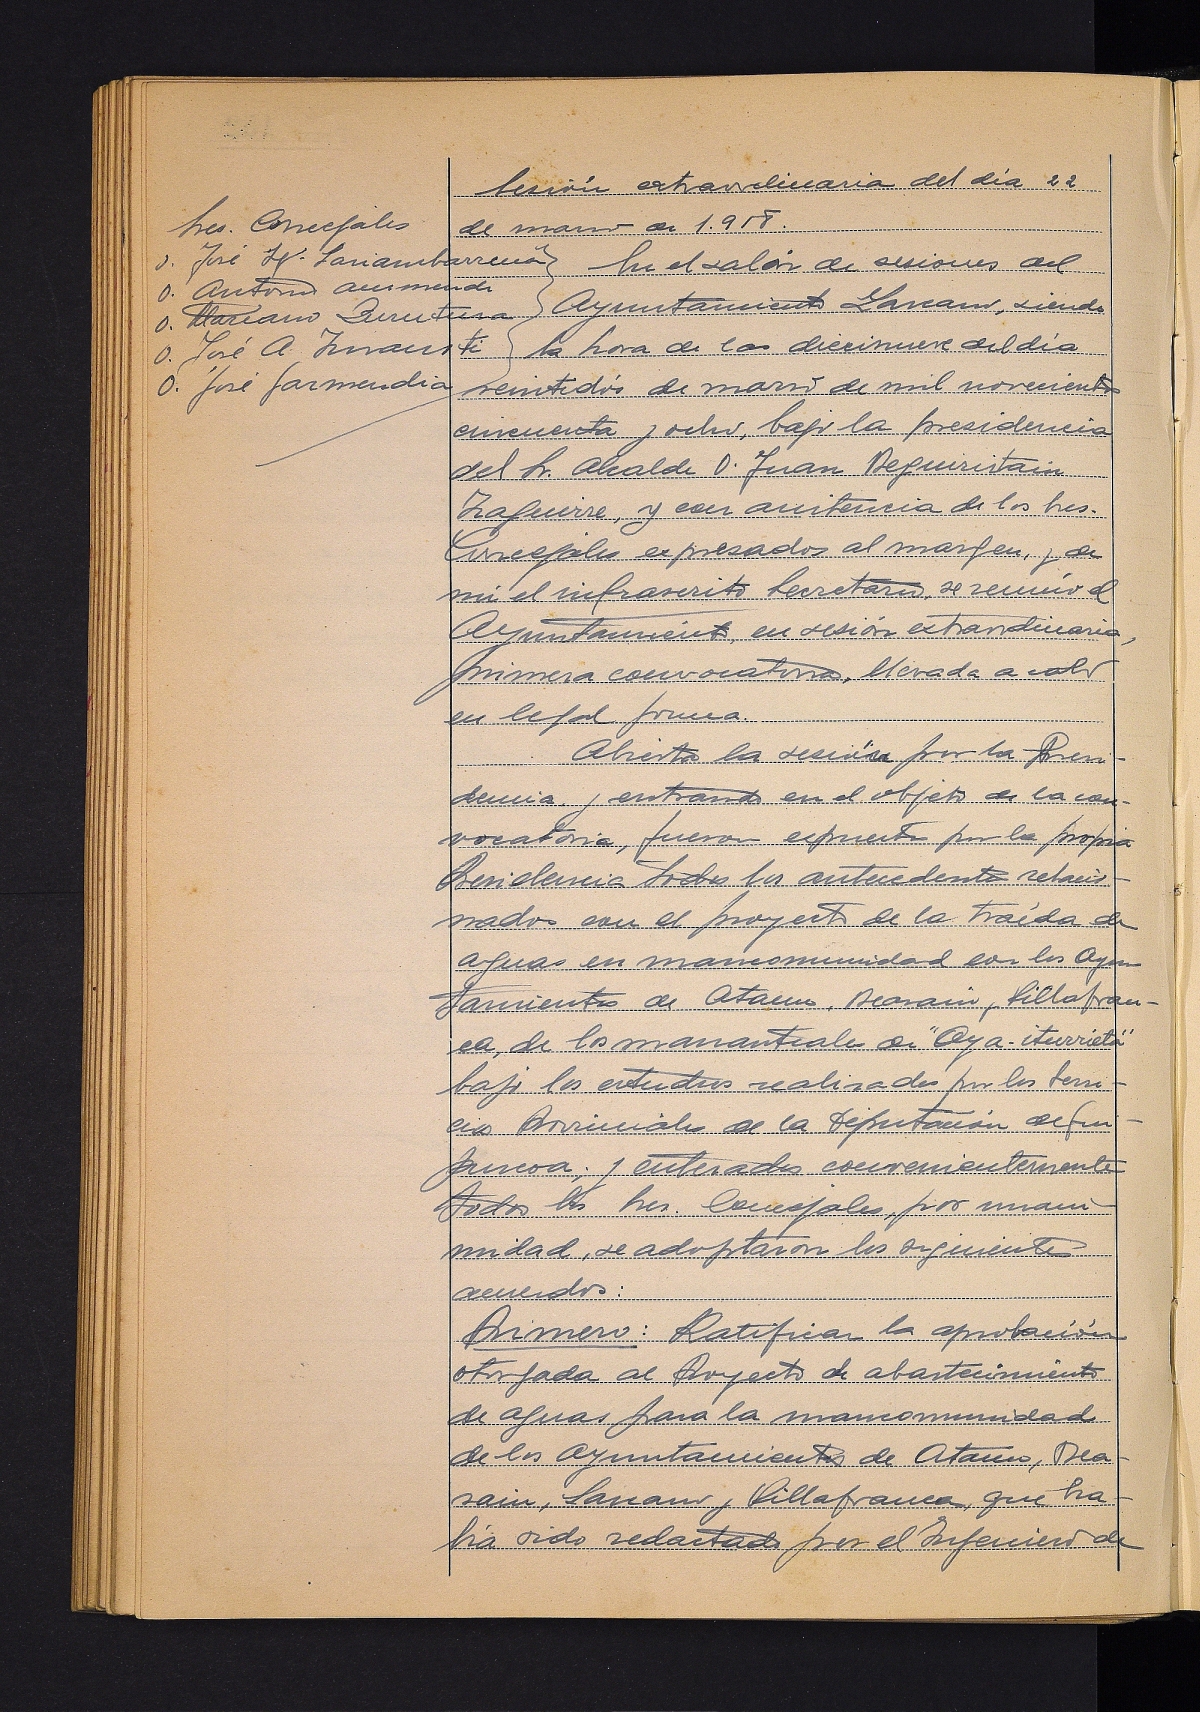 Sesión extraordinaria del día 22
de marzo de 1.958.
Sres. Concejales
D. José Igº. Lariambarrena
D. Antonio Aurmendi
D. Mariano Zurutuza
D. José A. Insausti
D. José Garmendia
En el salón de sesiones del
Ayuntamiento Lazcano, siendo
la hora de las diecinueve del día
veintidós de marzo de mil novecientos
cincuenta y ocho, bajo la presidencia
del Sr. Alcalde D. Juan Beguiristain
Izaguirre, y con asistencia de los Sres.
Concejales expresados al margen, y de
mi el infrascrito Secretario, se reunió el
Ayuntamiento, en sesión extraordinaria,
primera convocatoria, llevada a cabo
en legal forma.
Abierta la sesión por la Presi-
dencia, y entrando en el objeto de la con-
vocatoria, fueron expuestos por la propia
Presidencia todos los antecedentes relacio-
nados con el proyecto de la traída de
aguas en mancomunidad con los Ayun-
tamientos de Ataun, Beasain y Villafran-
ca, de los manantiales de "Aya-iturrieta"
bajo los estudios realizados por los Servi-
cios Provinciales de la Diputación de Gui-
púzcoa; y enterados convenientemente
todos los Sres. Concejales, por unani-
midad, se adoptaron los siguientes
acuerdos:
Primero: Ratificar la aprobación
otorgada al Proyecto de abastecimiento
de aguas para la mancomunidad
de los Ayuntamientos de Ataun, Bea-
sain, Lazcano y Villafranca, que ha-
bía sido redactado por el Ingeniero de